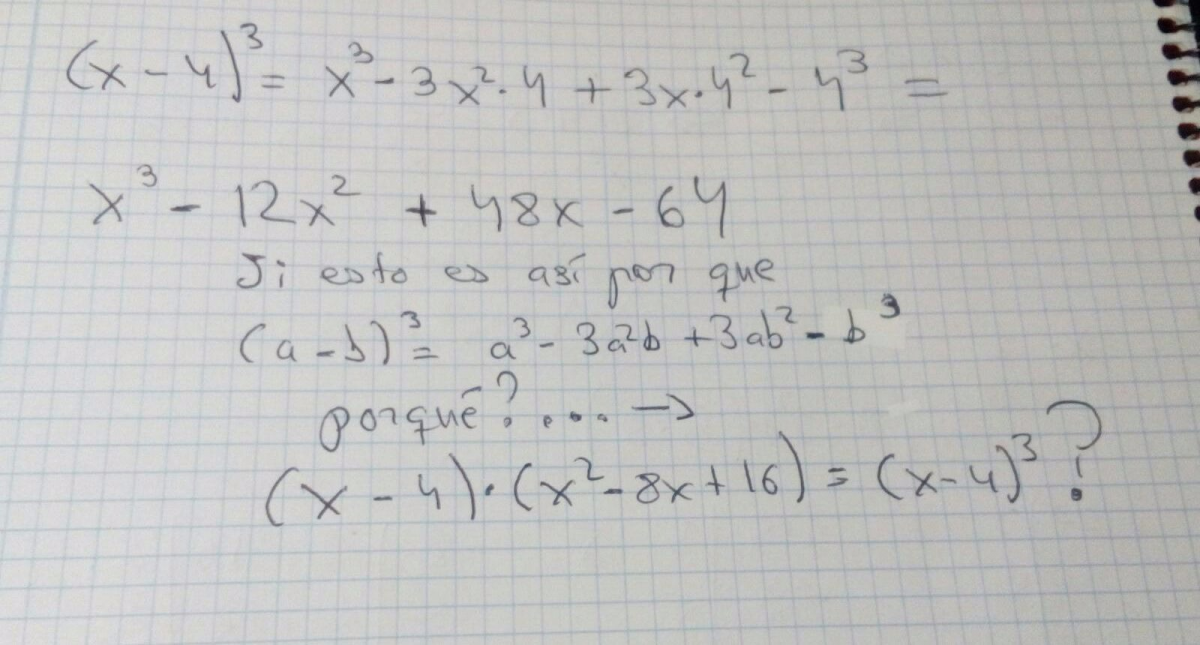 (x - 4)³ = x³ - 3x²·4 + 3x·4² - 4³ =
x³ - 12x² + 48x - 64
Ji esto es así por que
(a - b)³ = a³ - 3a²b + 3ab² - b³
porqué? .... →
(x - 4)·(x² - 8x + 16) = (x - 4)³?